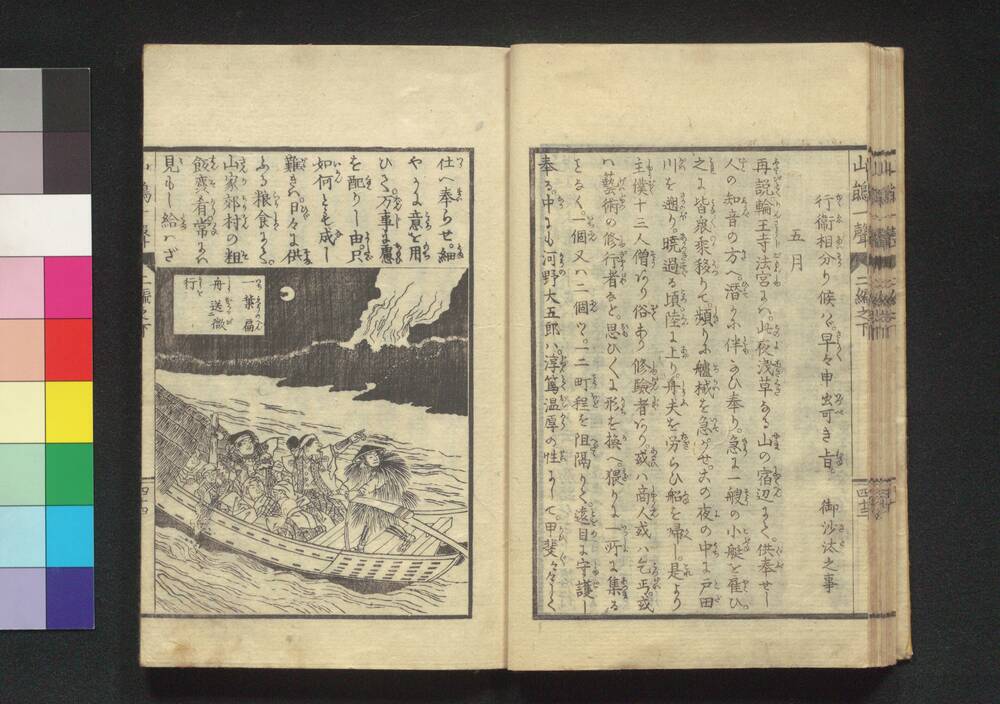 行衞相分り候ハヾ早々申出可き旨。御沙汰之事
五月
再説輪王寺法宮にハ。此夜浅草なる山の宿辺まで。供奉せし
人の知音の方へ潜かに伴なひ奉り。急に一艘の小艇を雇ひ
之に皆衆乗移りて頻りに艫械を急がせ。この夜の中に戸田
川を遡り。暁過る頃陸に上り舟夫を労らひ船を帰し。是より
主僕十三人僧あり俗あり修験者あり。或ハ商人或ハ乞丐。或
ハ藝術の修行者など。思ひ〱に形を換へ。猥りに一所に集る
となく。一個又ハ二個づゝ。一二町程を阻隔りて。遠目に守護し
奉る。中にも河野大五郎ハ。淳篤温厚の性にして甲斐々々しく
山鵑一聲
二編之下
四十三
仕へ奉らせ。細
やかに意を用
ひて。万事に慮
を配りし由。只
如何とも成し
難きハ。日々に供
ふる粮食にて。
山家郷村の粗
飯。糞肴常にハ
見もし給ハざ
一葉扁
舟送微
行
二編之下
四十四